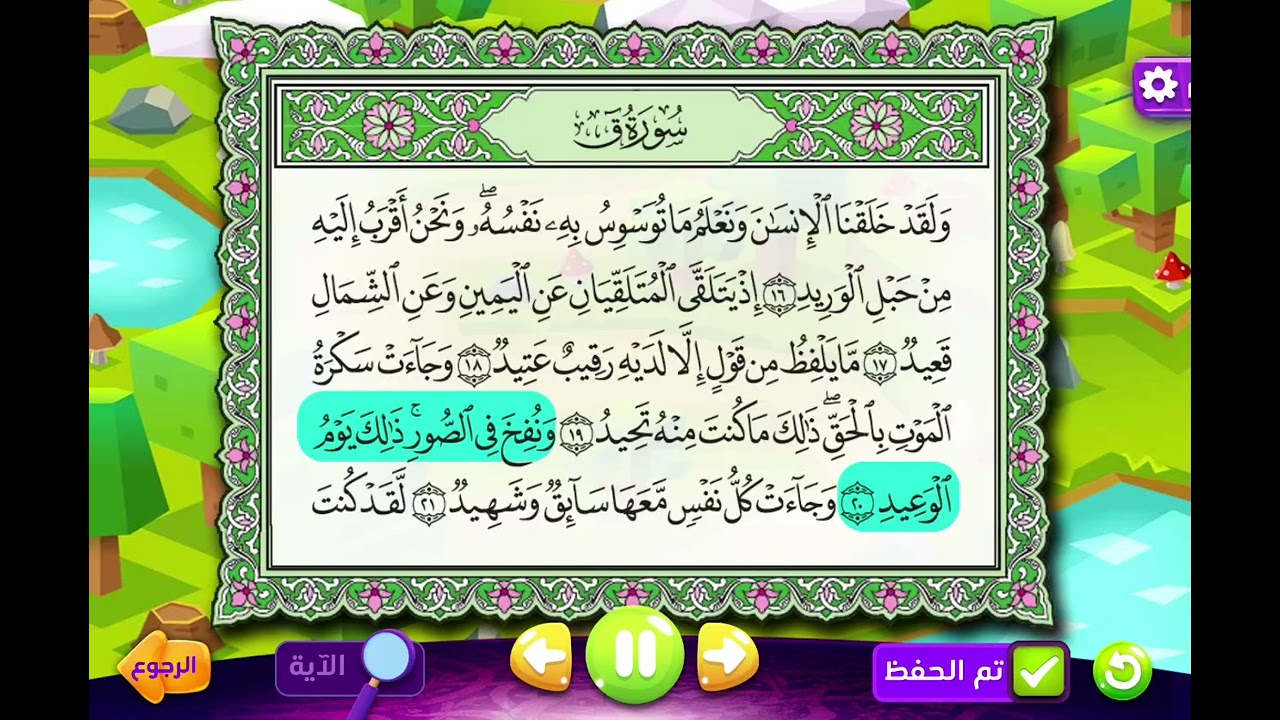 سُورَةُ ق
وَلَقَدْ خَلَقْنَا ٱلْإِنسَٰنَ وَنَعْلَمُ مَا تُوَسْوِسُ بِهِۦ نَفْسُهُۥۖ وَنَحْنُ أَقْرَبُ إِلَيْهِ
مِنْ حَبْلِ ٱلْوَرِيدِ ١٦ إِذْ يَتَلَقَّى ٱلْمُتَلَقِّيَانِ عَنِ ٱلْيَمِينِ وَعَنِ ٱلشِّمَالِ
قَعِيدٌ ١٧ مَّا يَلْفِظُ مِن قَوْلٍ إِلَّا لَدَيْهِ رَقِيبٌ عَتِيدٌ ١٨ وَجَآءَتْ سَكْرَةُ
ٱلْمَوْتِ بِٱلْحَقِّۖ ذَٰلِكَ مَا كُنتَ مِنْهُ تَحِيدُ ١٩ وَنُفِخَ فِى ٱلصُّورِۚ ذَٰلِكَ يَوْمُ
ٱلْوَعِيدِ ٢٠ وَجَآءَتْ كُلُّ نَفْسٍ مَّعَهَا سَآئِقٌ وَشَهِيدٌ ٢١ لَّقَدْ كُنتَ
تم الحفظ
الآية
الرجوع